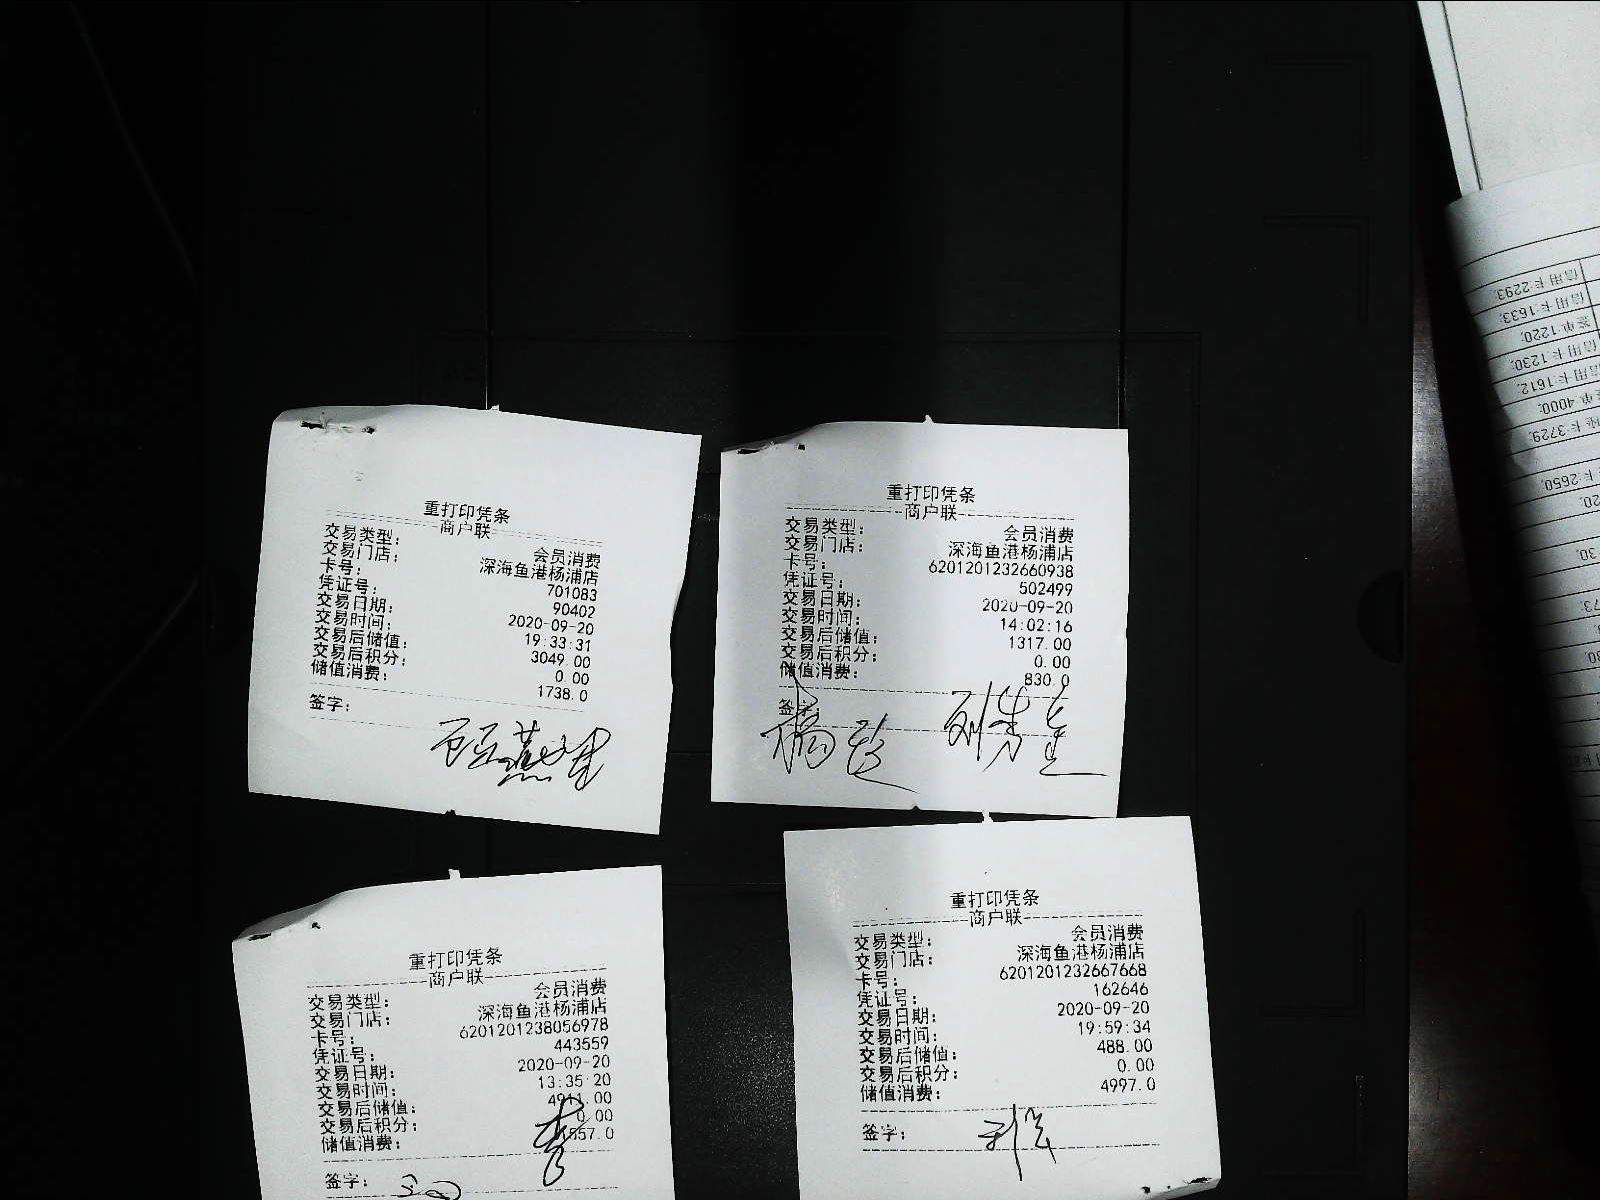 重打印凭条
商户联
交易类型： 会员消费
交易门店： 深海鱼港杨浦店
卡号： 701083
凭证号： 90402
交易日期： 2020-09-20
交易时间： 19:33:31
交易后储值： 3049.00
交易后积分： 0.00
储值消费： 1738.0
签字：
重打印凭条
商户联
交易类型： 会员消费
交易门店： 深海鱼港杨浦店
卡号： 6201201232660938
凭证号： 502499
交易日期： 2020-09-20
交易时间： 14:02:16
交易后储值： 1317.00
交易后积分： 0.00
储值消费： 830.0
签字：
重打印凭条
商户联
交易类型： 会员消费
交易门店： 深海鱼港杨浦店
卡号： 6201201238056978
凭证号： 443559
交易日期： 2020-09-20
交易时间： 13:35:20
交易后储值： 4911.00
交易后积分： 0.00
储值消费：
签字：
重打印凭条
商户联
交易类型： 会员消费
交易门店： 深海鱼港杨浦店
卡号： 6201201232667668
凭证号： 162646
交易日期： 2020-09-20
交易时间： 19:59:34
交易后储值： 488.00
交易后积分： 0.00
储值消费： 4997.0
签字：
信用卡:2293;
信用卡:1633;
签单:1220;
信用卡:1230;
信用卡:1612;
单:4000;
卡:3729;
卡:2650;